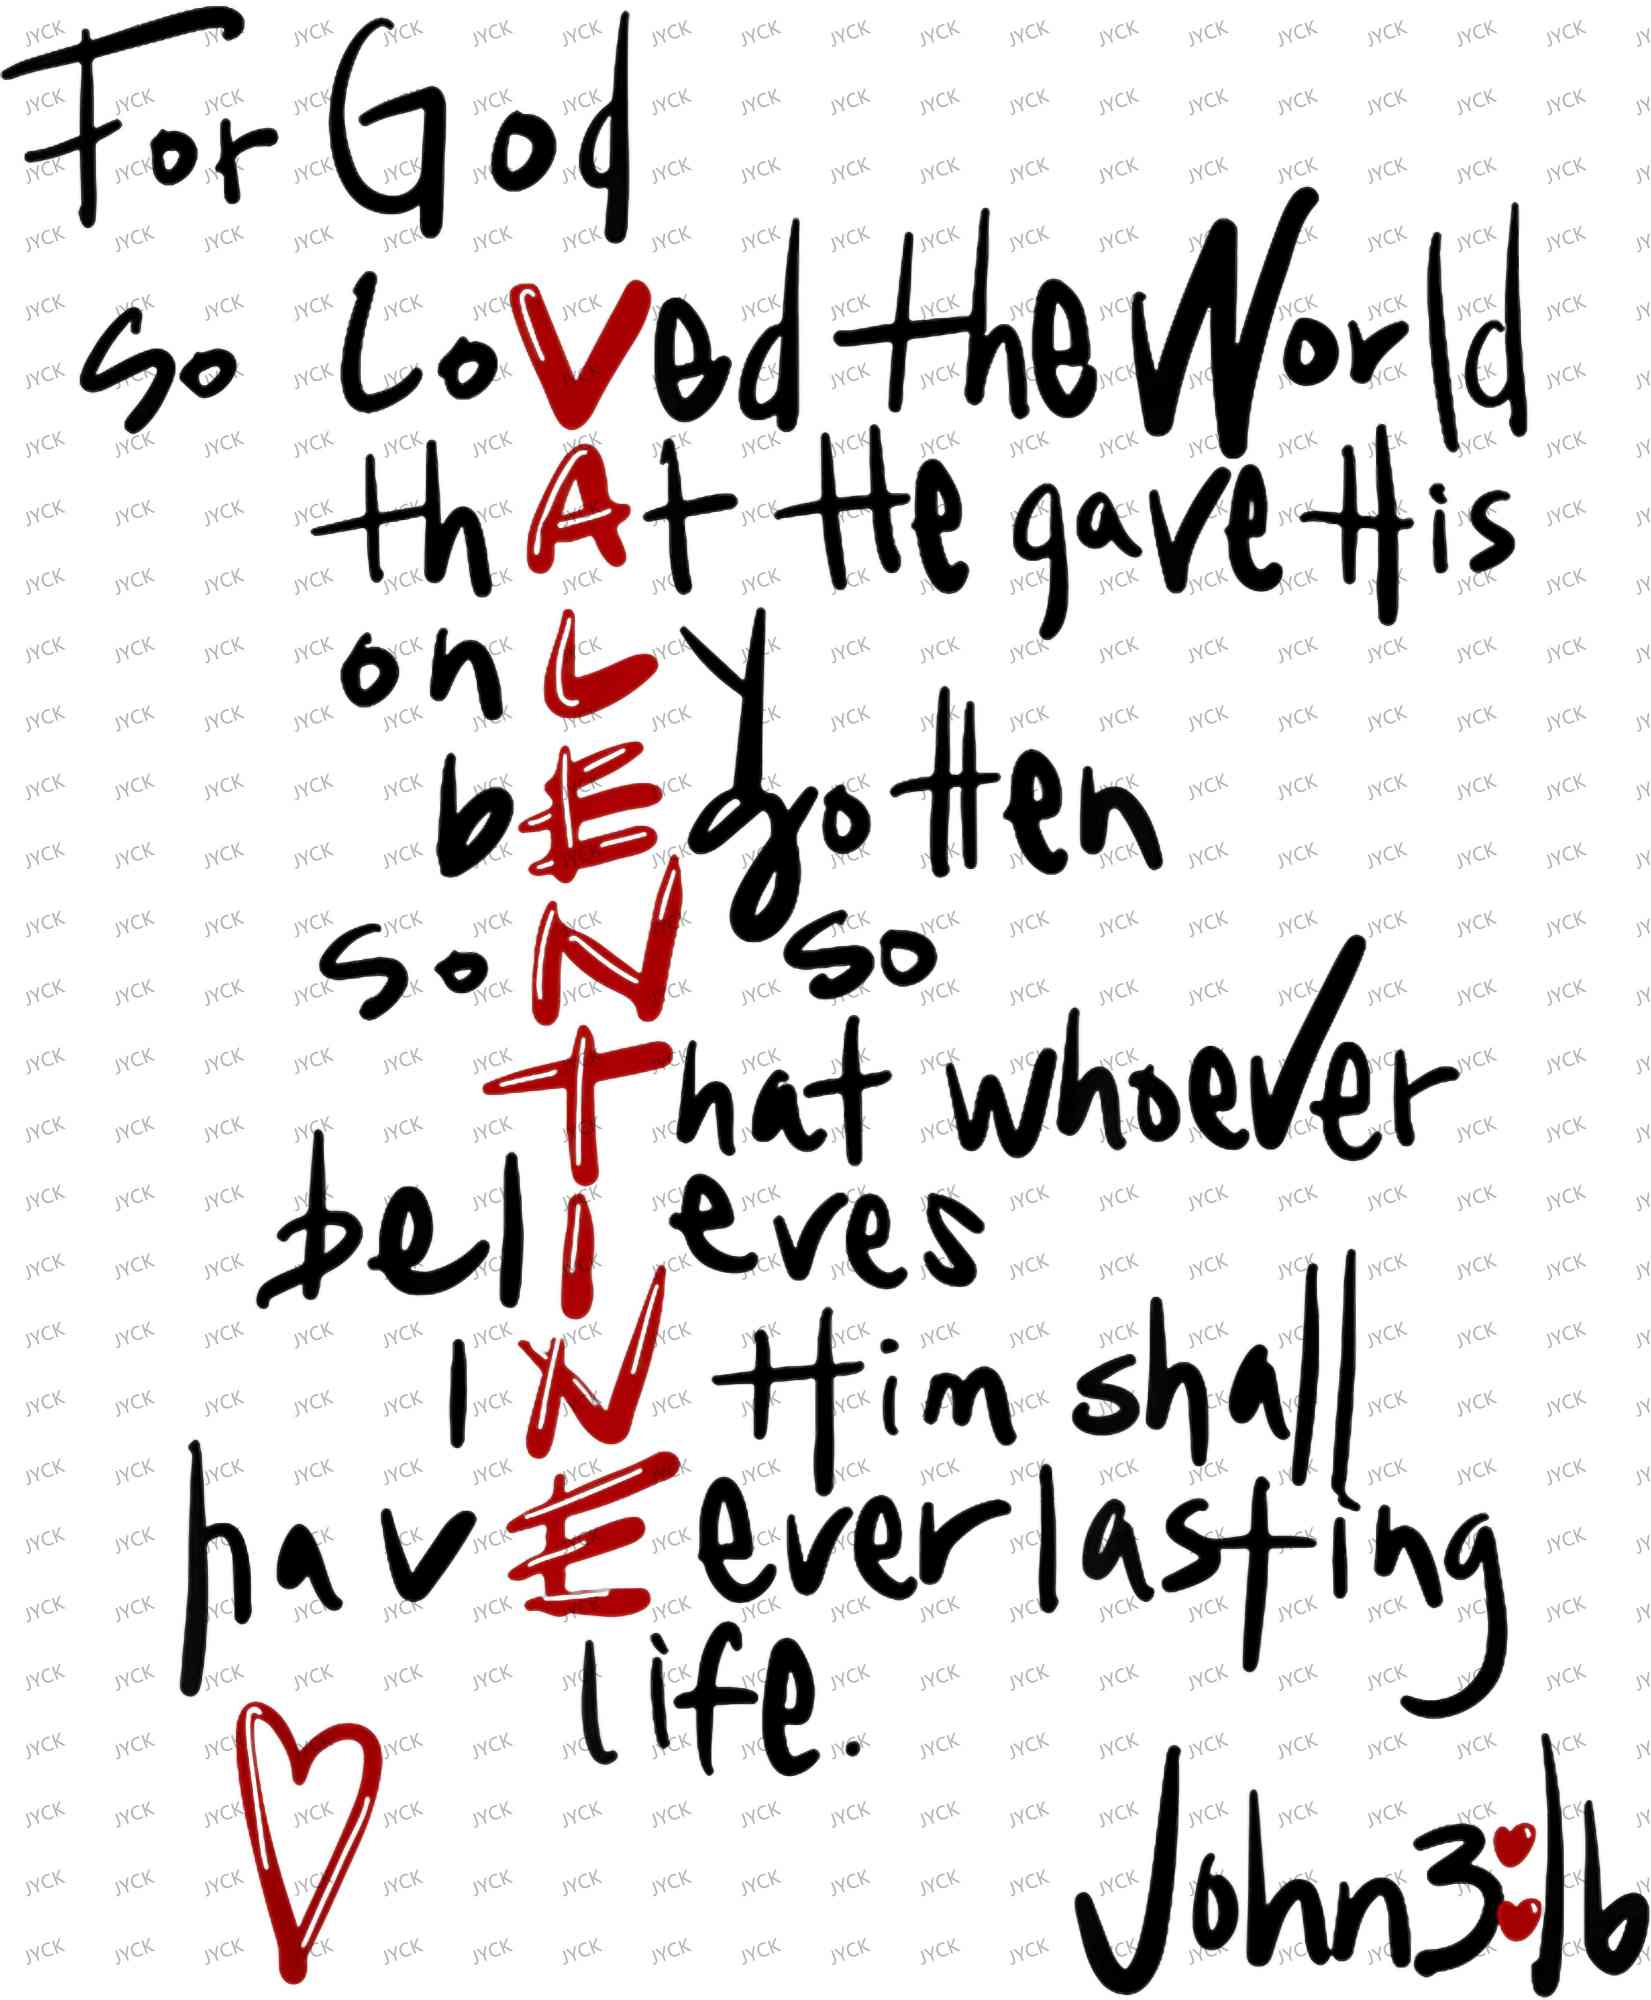 For God
so LoVed the World
thAt He gave His
onLy
bEgotten
soN so
That whoever
belIeves
IN Him shall
havE everlasting
life.
John 3:16
JYCK